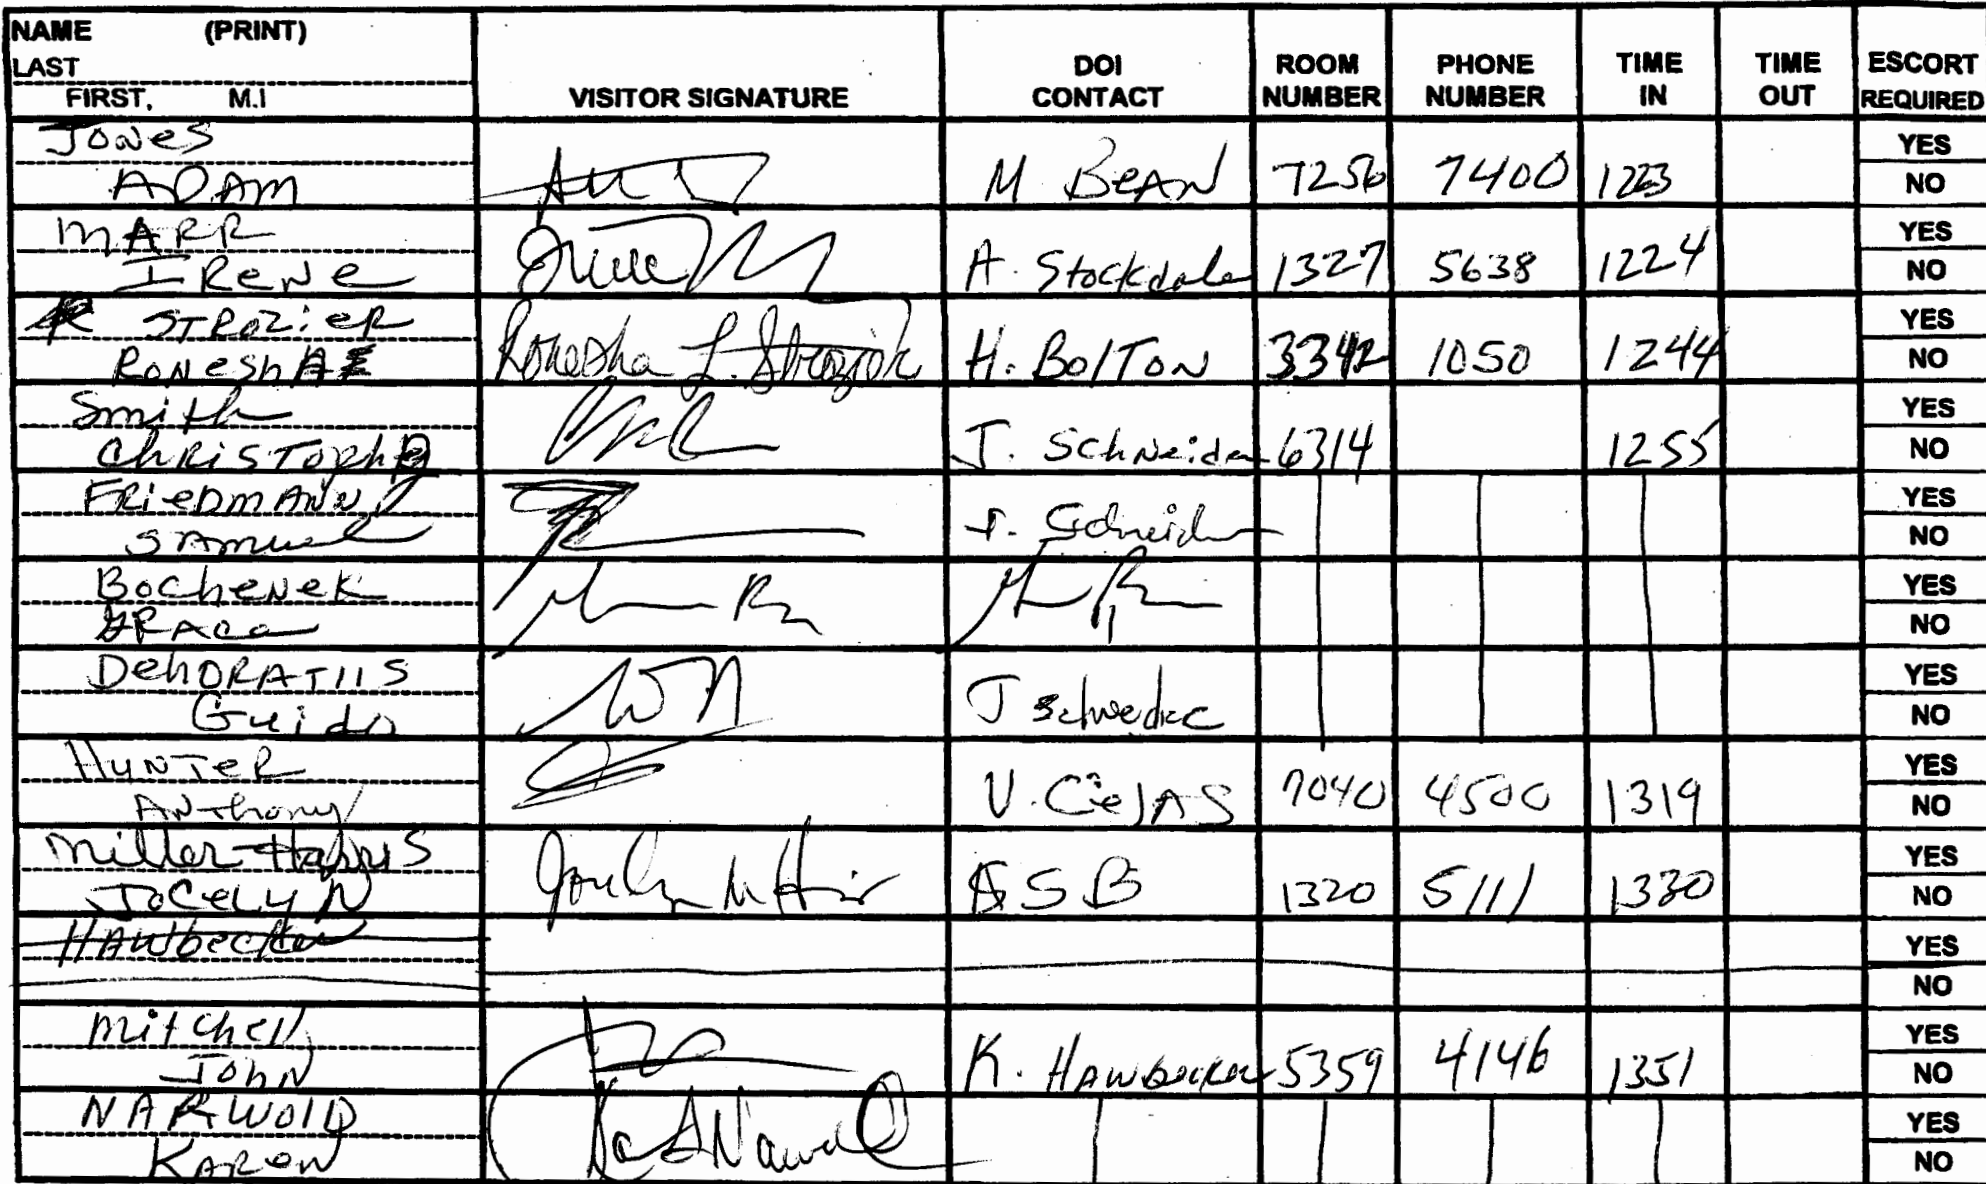 NAME (PRINT)
LAST
FIRST, M.I
VISITOR SIGNATURE
DOI CONTACT
ROOM NUMBER
PHONE NUMBER
TIME IN
TIME OUT
ESCORT REQUIRED
JONES
ADAM
M BEAN 7256 7400 1223
YES
NO
MARR
IRENE
A. Stockdale 1327 5638 1224
YES
NO
STROZIER
RONESHA
Ronesha L. Strozier
H. BOLTON 3342 1050 1244
YES
NO
Smith
CHRISTOPHER
J. Schneider 6314 1255
YES
NO
FRIEDMANN
SAMUEL
J. Schneider
YES
NO
BOCHENEK
YES
NO
DEHORATIIS
Guido
YES
NO
HUNTER
ANthony
V. CIEJAS 7040 4500 1319
YES
NO
Miller-Harris
JOCELYN
SB 1320 5111 1330
YES
NO
HAWbecker
YES
NO
Mitchell
JOHN
K. HAWBECKER 5359 4146 1351
YES
NO
NARWOLD
KAREN
YES
NO